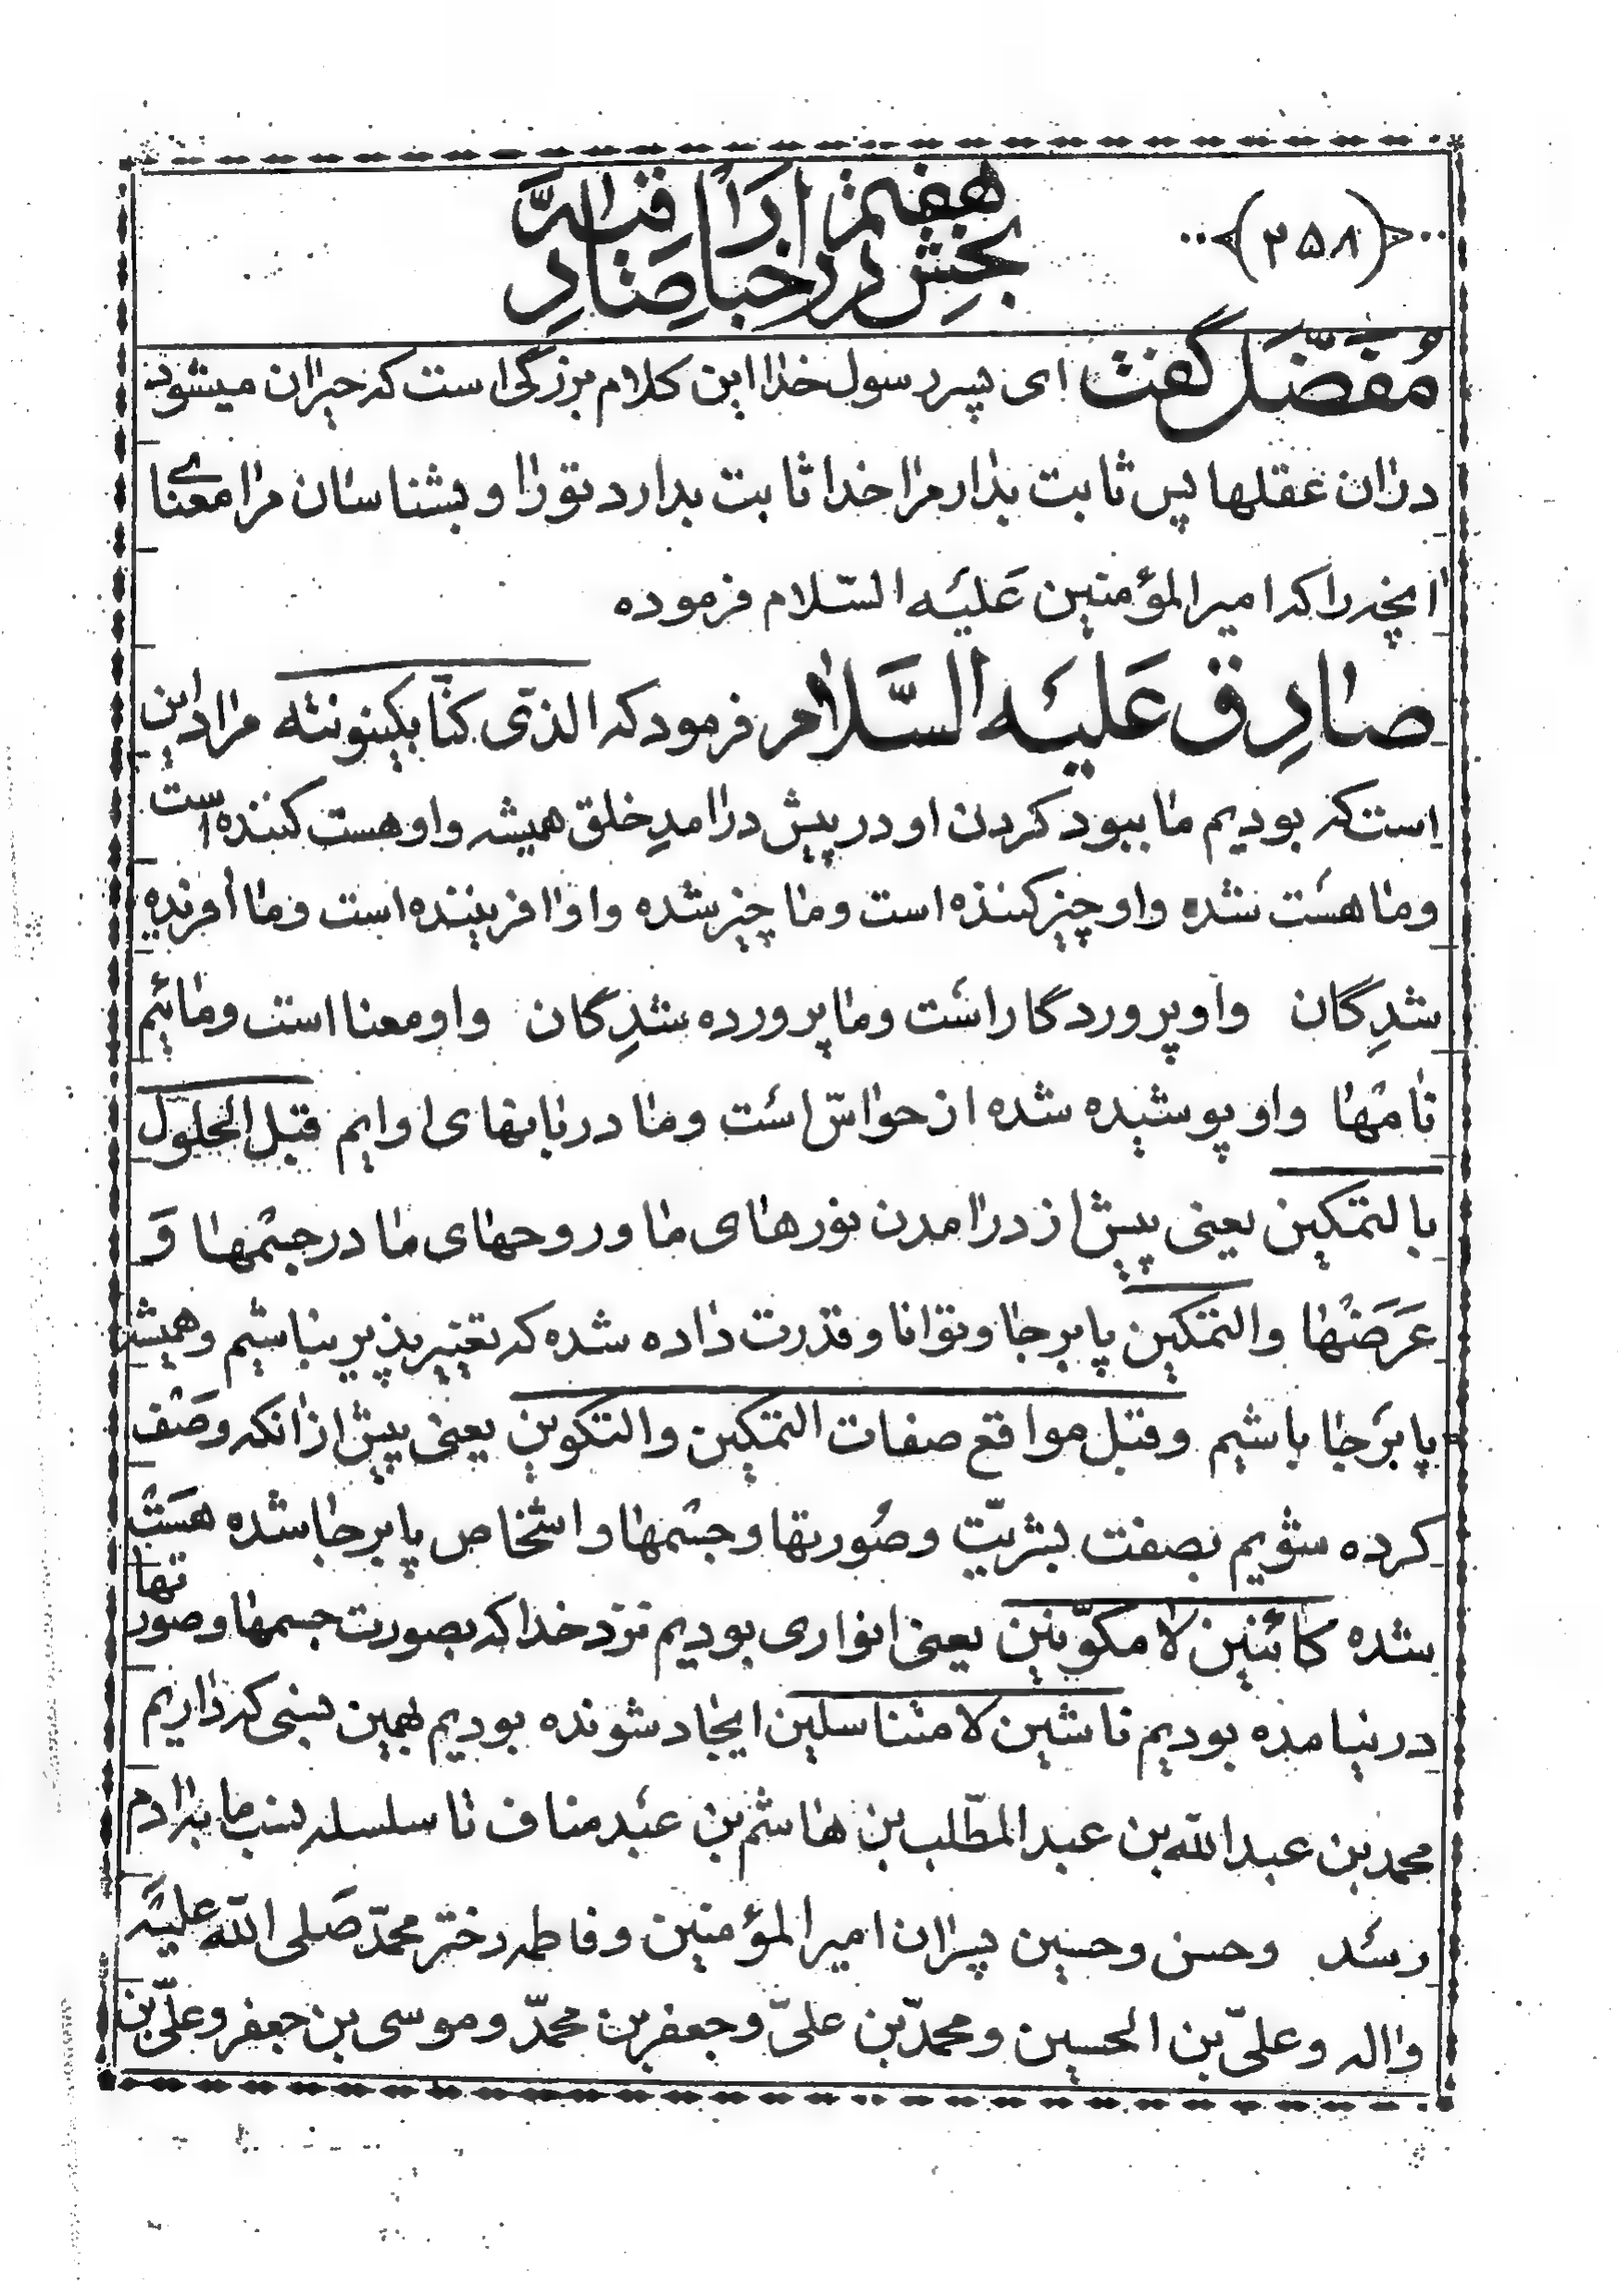 ﴿۲۵۸﴾
بخش هفتم در اخبار صادقیه
مُفَضَّل گفت ای پسر رسول خدا این کلام بزرگی است که حیران میشود
دران عقلها پس ثابت بدار مرا خدا ثابت بدارد تو را و بشناسان مرا معنای
انچه را که امیر المؤمنین عَلیَه السّلام فرموده
صادِق عَلیَه السَّلام فرمود که الذی کنّا بکینونته مراد این
است که بودیم ما ببود کردن او در پیش درامدِ خلق همیشه و او هست کننده است
و ما هست شده و او چیز کننده است و ما چیز شده و او افریننده است و ما افریده
شدِگان و او پروردگار است و ما پرورده شدِگان و او معنا است و مائیم
نامها و او پوشیده شده از حواسّ است و ما دربانهای اوایم قبل الحلول
بالتمکین یعنی پیش از درامدن نورهای ما و روحهای ما در جسمها وَ
عَرَضها والتمکین پابرجا و توانا و قدرت داده شده که تغییر پذیر نباشیم و همیشه
پابرجا باشیم وقبل مواقع صفات التمکین والتکوین یعنی پیش از انکه وصف
کرده شویم بصفت بشریّت و صُورتها و جسمها و اشخاص پابرجا شده هست
شده کائنین لا مکوّنین یعنی انواری بودیم نزد خدا که بصورت جسمها و صورتها
در نیامده بودیم ناشین لا متناسلین ایجاد شونده بودیم بهمین نسبی که داریم
محمد بن عبد الله بن عبد المطّلب بن هاشم بن عبد مناف تا سلسله نسب ما بادم
رسد و حسن و حسین پسران امیر المؤمنین و فاطمه دختر محمّد صَلی الله علیَه
واله و علیّ بن الحسین و محمدّ بن علیّ و جعفر بن محمدّ و موسی بن جعفر و علیّ بن